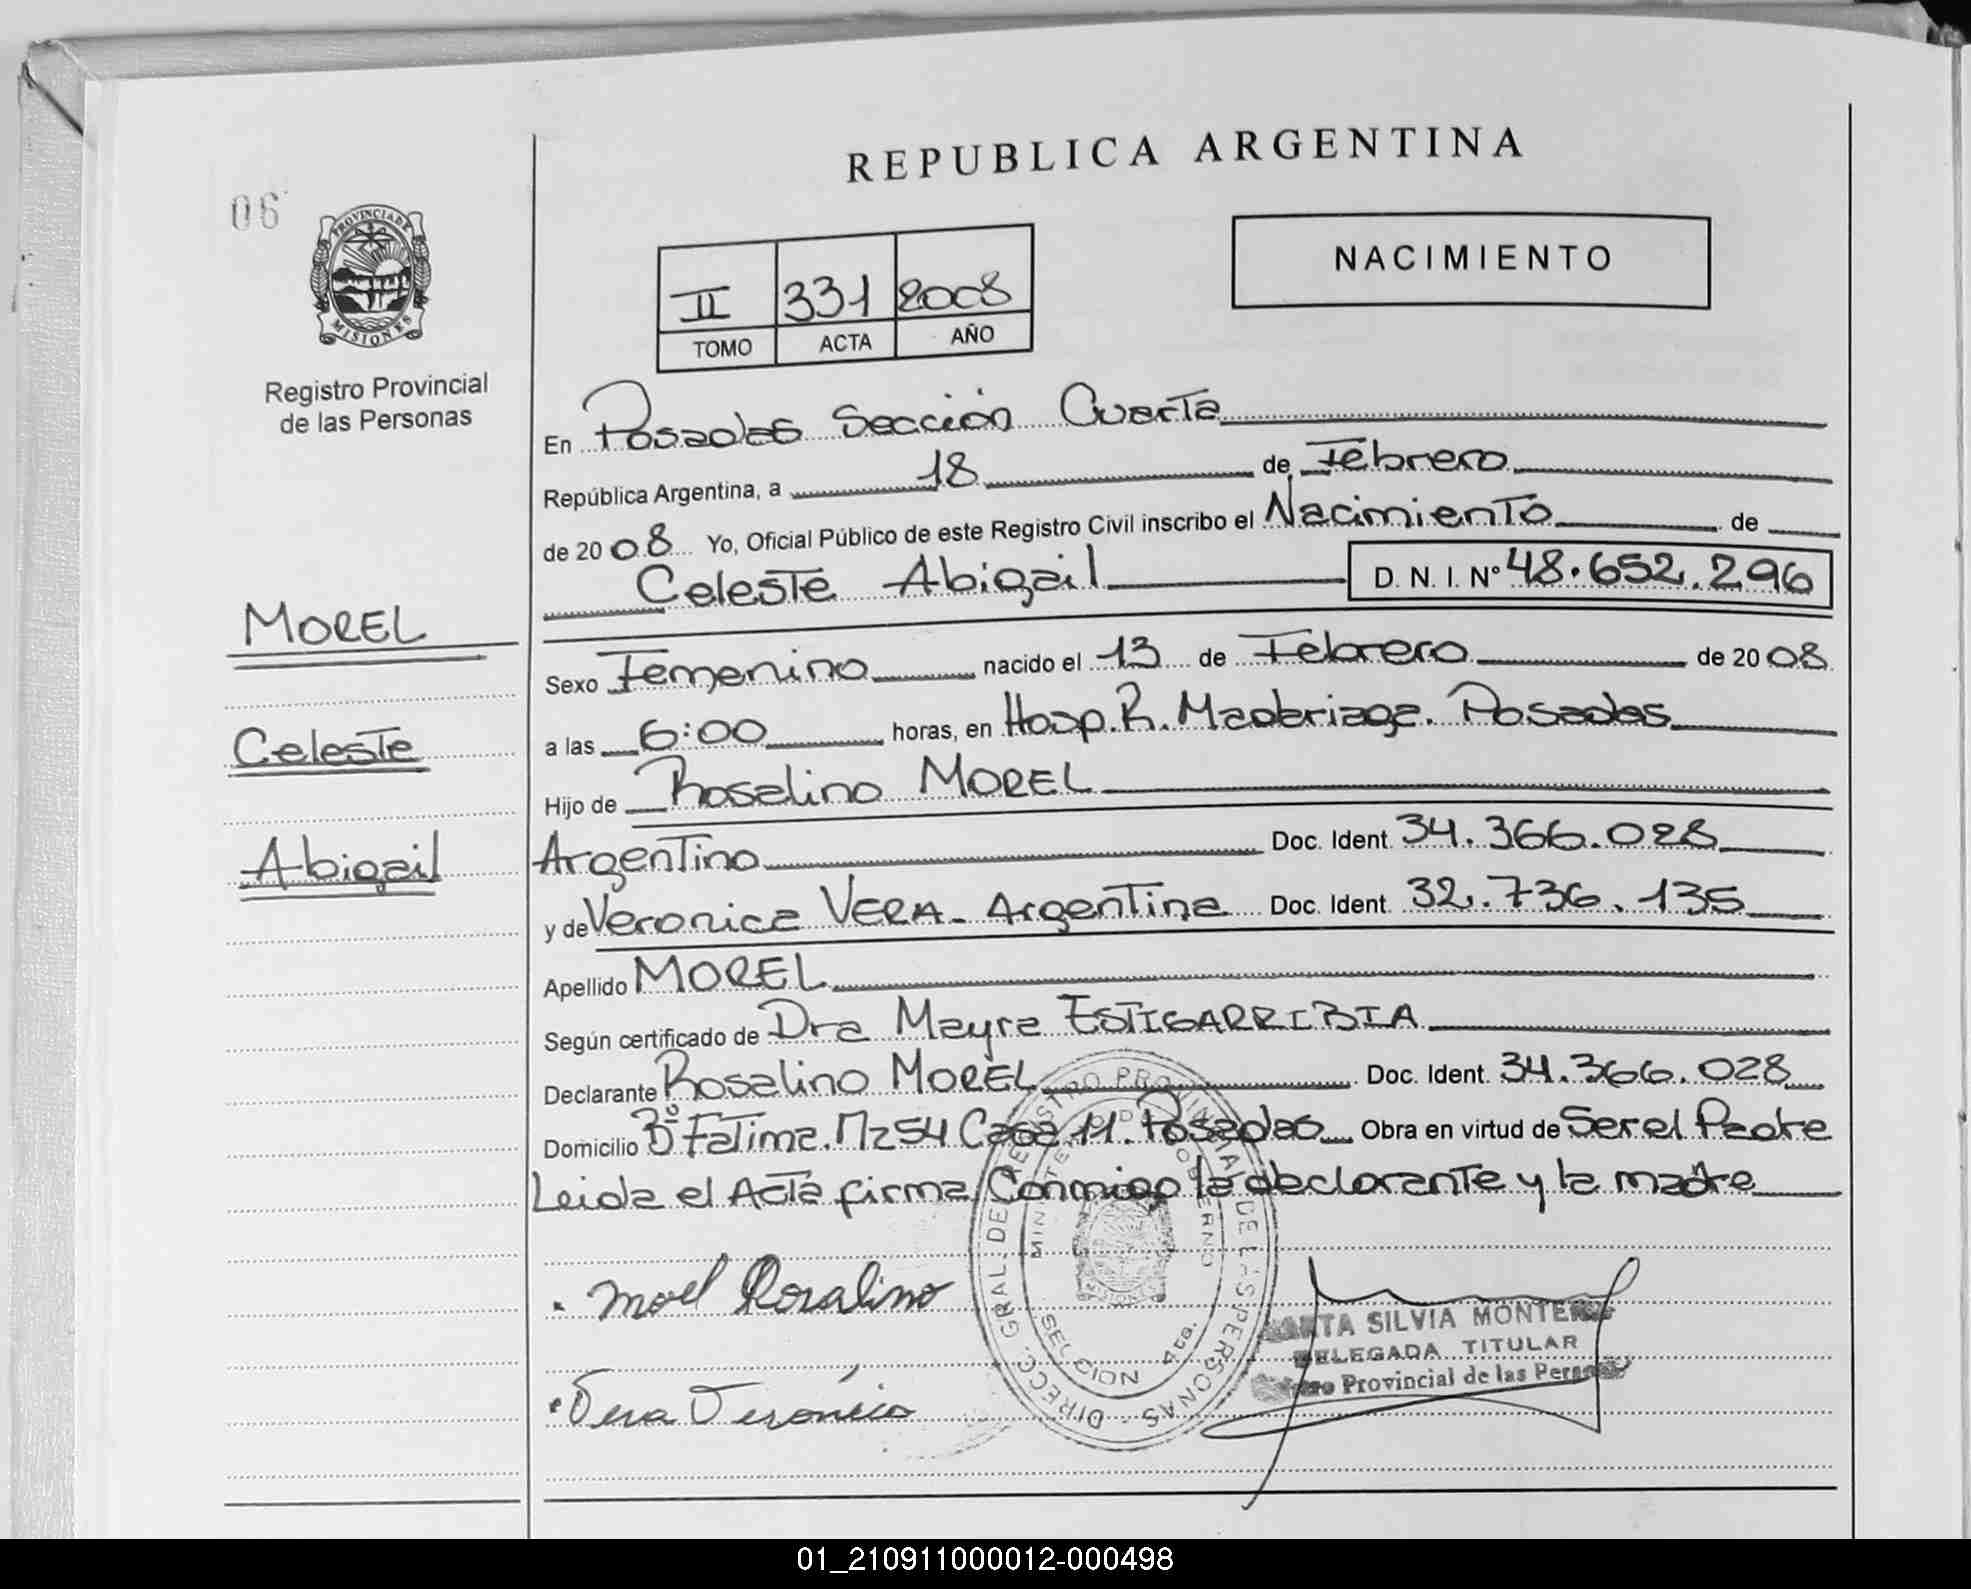 REPUBLICA ARGENTINA
06
PROVINCIA DE
MISIONES
Registro Provincial
de las Personas
II 331 2008
TOMO ACTA AÑO
NACIMIENTO
En Posadas Sección Cuarta
República Argentina, a 18 de Febrero
de 2008 Yo, Oficial Público de este Registro Civil inscribo el Nacimiento de
Celeste Abigail D. N. I. Nº 48.652.296
MOREL
Celeste
Abigail
Sexo Femenino nacido el 13 de Febrero de 2008
a las 6:00 horas, en Hosp. R. Madariaga. Posadas
Hijo de Rosalino MOREL
Argentino Doc. Ident. 34.366.028
y de Veronica VERA - Argentina Doc. Ident. 32.736.135
Apellido MOREL
Según certificado de Dra Mayra ESTIGARRIBIA
Declarante Rosalino MOREL Doc. Ident. 34.366.028
Domicilio Bº Fatima. Mz 54 Casa 11. Posadas Obra en virtud de Ser el Padre
Leida el Acta firma Conmigo la declarante y la madre
DIRECC. GRAL. DE REGISTRO PROVINCIAL DE LAS PERSONAS
MINISTERIO DE GOBIERNO
SECCION 4ta.
Morel Rosalino
SILVIA MONTERO
DELEGADA TITULAR
Provincial de las Personas
Vera Verónica
01_210911000012-000498